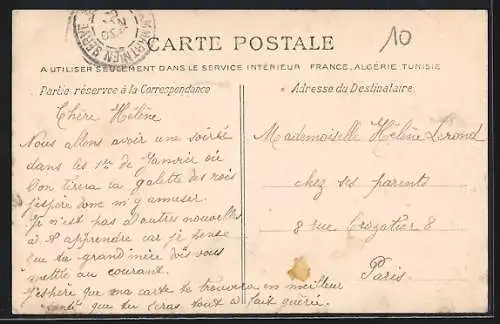 CARTE POSTALE
10
A UTILISER SEULEMENT DANS LE SERVICE INTÉRIEUR FRANCE, ALGÉRIE TUNISIE
Partie réservée à la Correspondance
Adresse du Destinataire
Chère Hélène
Nous allons avoir une soirée
dans les 1er de Janvier où
l'on tirera la galette des rois
j'espère donc m'y amuser.
Je n'est pas d'autres nouvelles
à t'apprendre car je pense
que ta grand mère dois vous
mettre au courant.
J'espère que ma carte te trouvera en meilleur
santé que tu seras tout à fait guérie.
Mademoiselle Hélène Lerond
chez ses parents
8 rue Crozatier 8
Paris.